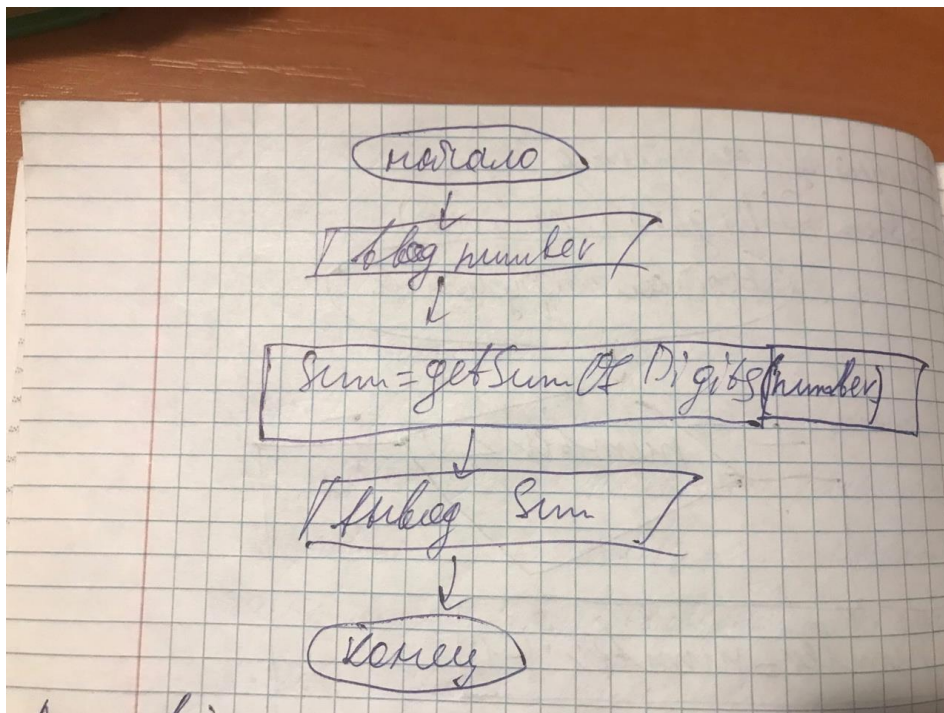 начало
ввод number
Sum=getSumOfDigits(number)
вывод Sum
конец